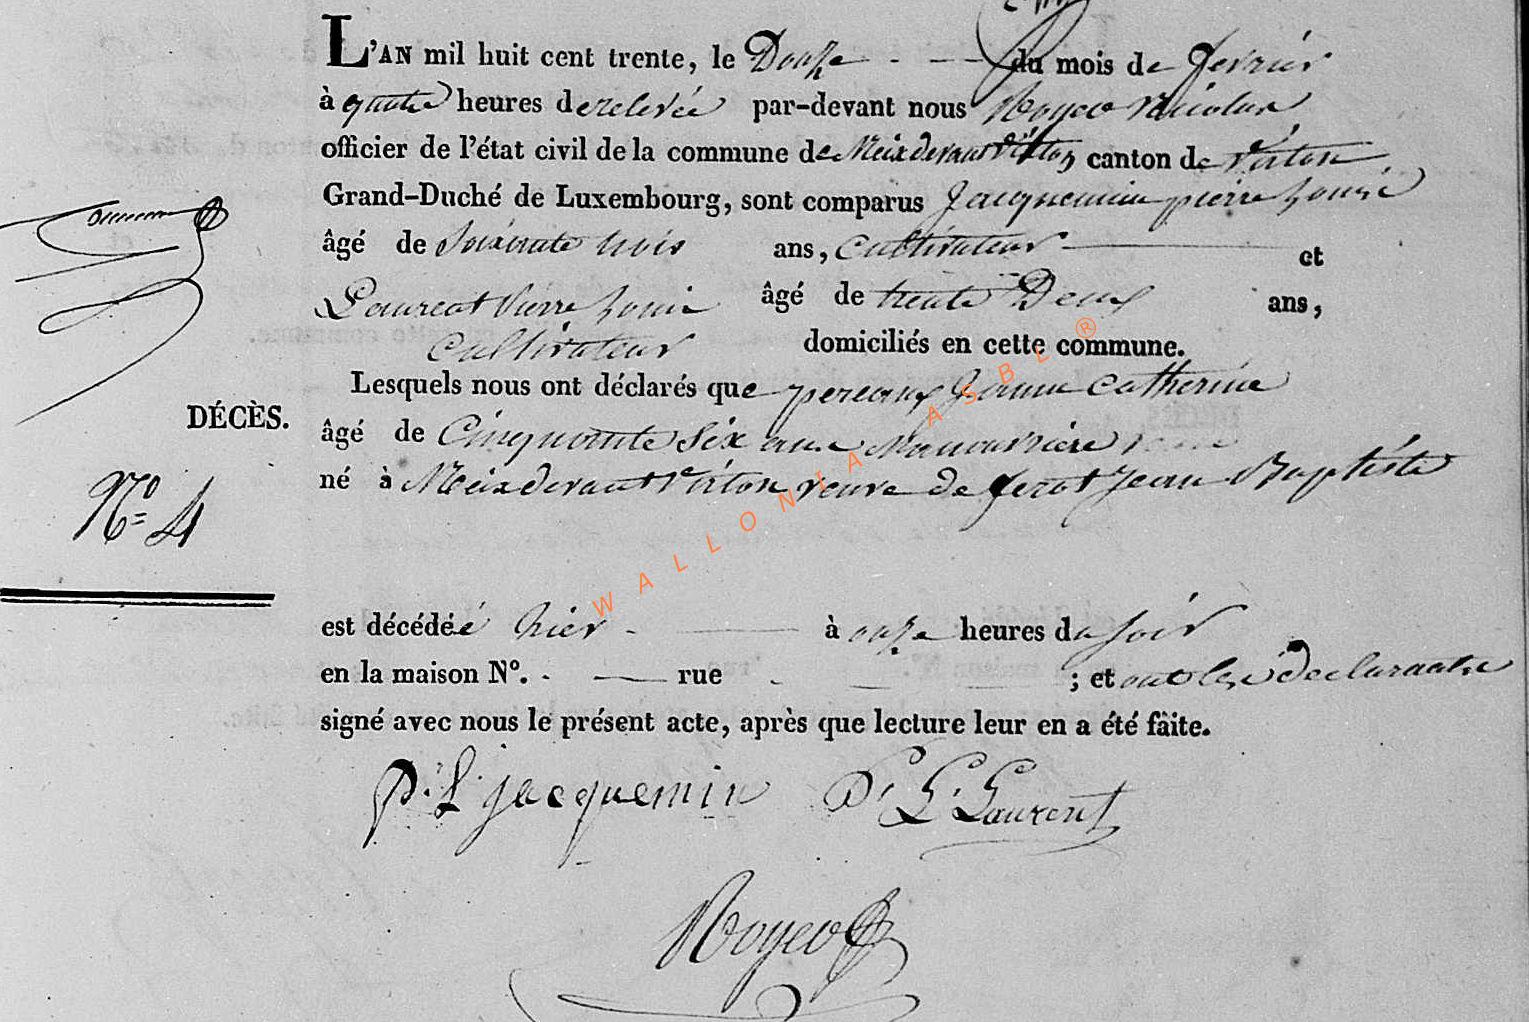 L'AN mil huit cent trente, le Douze du mois de fevrier
à quatre heures de relevée par-devant nous Royeo Nicolas
officier de l'état civil de la commune de Meix devant Virton canton de Virton
Grand-Duché de Luxembourg, sont comparus Jacquemin pierre Louis
âgé de Soixante trois ans, cultivateur et
Laurent Pierre Louis âgé de trente Deux ans,
cultivateur domiciliés en cette commune.
Lesquels nous ont déclarés que Jeanne Catherine
DÉCÈS.
âgé de Cinquante Six ans Manouvrière
né à Meix devant Virton veuve de ferot Jean Baptiste
N° 4
est décédée hier à onze heures du soir
en la maison N°. rue ; et ont les declarants
signé avec nous le présent acte, après que lecture leur en a été fàite.
P. L. jacquemin P. L. Laurent
Royeo
WALLONIA ASBL ®